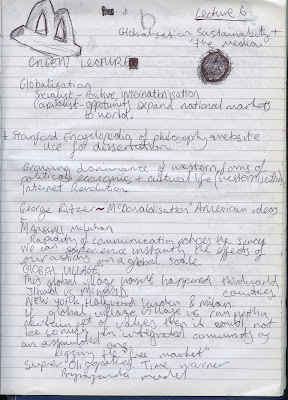 Lecture 6
Globalisation Sustainability +
the media.
LECTURE
Globalisation
Socialist - Positive, internationalisation
Capitalist - opportunity expand national markets
to world.
Stanford Encyclopedia of philosophy website
use for dissertation
Growing dominance of western forms of
political, economic + cultural life (westernisation)
Internet Revolution.
George Ritzer ~ McDonaldisation' American ideas
Marshall McLuhan
Rapidity of communication echoes the senses
We can experience instantly the effects of
our actions on a global scale.
GLOBAL VILLAGE,
This global village hasnt happened third world
countries.
Jihad vs McWORLD.
NEW York Hollywood London & milan
if global village village is run with a
certain set of values then it would not
be so much an integrated community as
an assimilated one.
rigging the "free market"
Super Oligopolies. Time warner
propaganda model